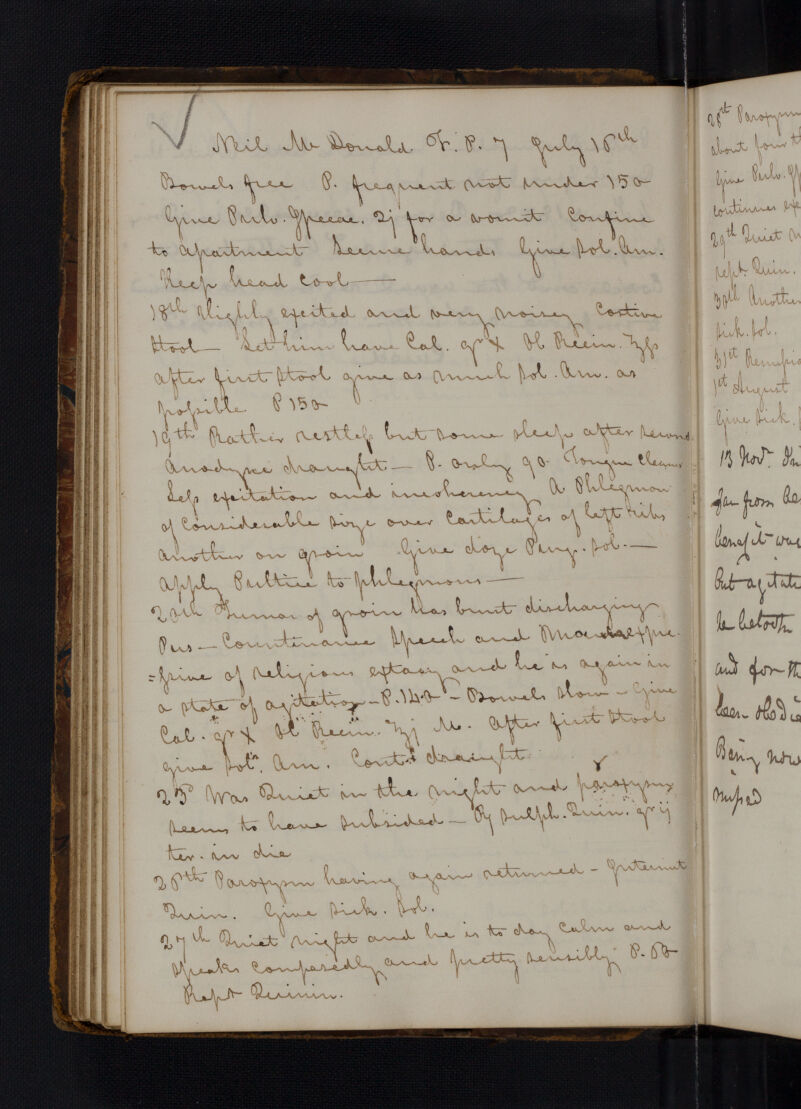 Neil Mc Donald F. P. 7 July 16th
Bowels free P. frequent not under 150
Give Pulv. Ipecac. ʒj for a vomit Confine
to apartment Secure hands Give Sol. Am.
Keep head cool—
18th Highly excited and very noisey Costive
Stool— Let him have Cal. gr X Ol Recin. ℥fs
after first stool give as much Sol. Am. as
possible P 150
19th Rather restless but some sleep after second
Anodyne draught— P. only 90. Tongue cleaner
Less excitation and incoherency A Phlegmon
of Considerable size over Cartilages of left ribs
another on groin Give doze Purg. Sol.—
apply Pultice to phlegmons—
20th Tumor of groin has burst discharging
Pus— Countenance Speech and
of religious extasy and he is again in
a state of agitation— P. 140— Bowels slow— Give
Cal. gr X Ol Recin. ℥j M. after first Stool
give Soln. Am. Contd draught
25 Was Quiet in the night and paroxysm
seems to have subsided— Rj Sulph. Quin. gr ij
ter. in die
26th Paroxysm having again returned— Intermit
Quin. Give Sick. Sol.
27th Quiet night and he is to day calm and
speaks composedly and pretty sensibly P. 60
Rept Quinin.
28th Paroxysm
about four
Give Pulv.
continues
29th Quiet
rept. Quin.
30th Another
Sick. Sol.
31st
1st August
Give Sick.
13 Novr.
far from
benefit was
But
he
and for
been
Being now